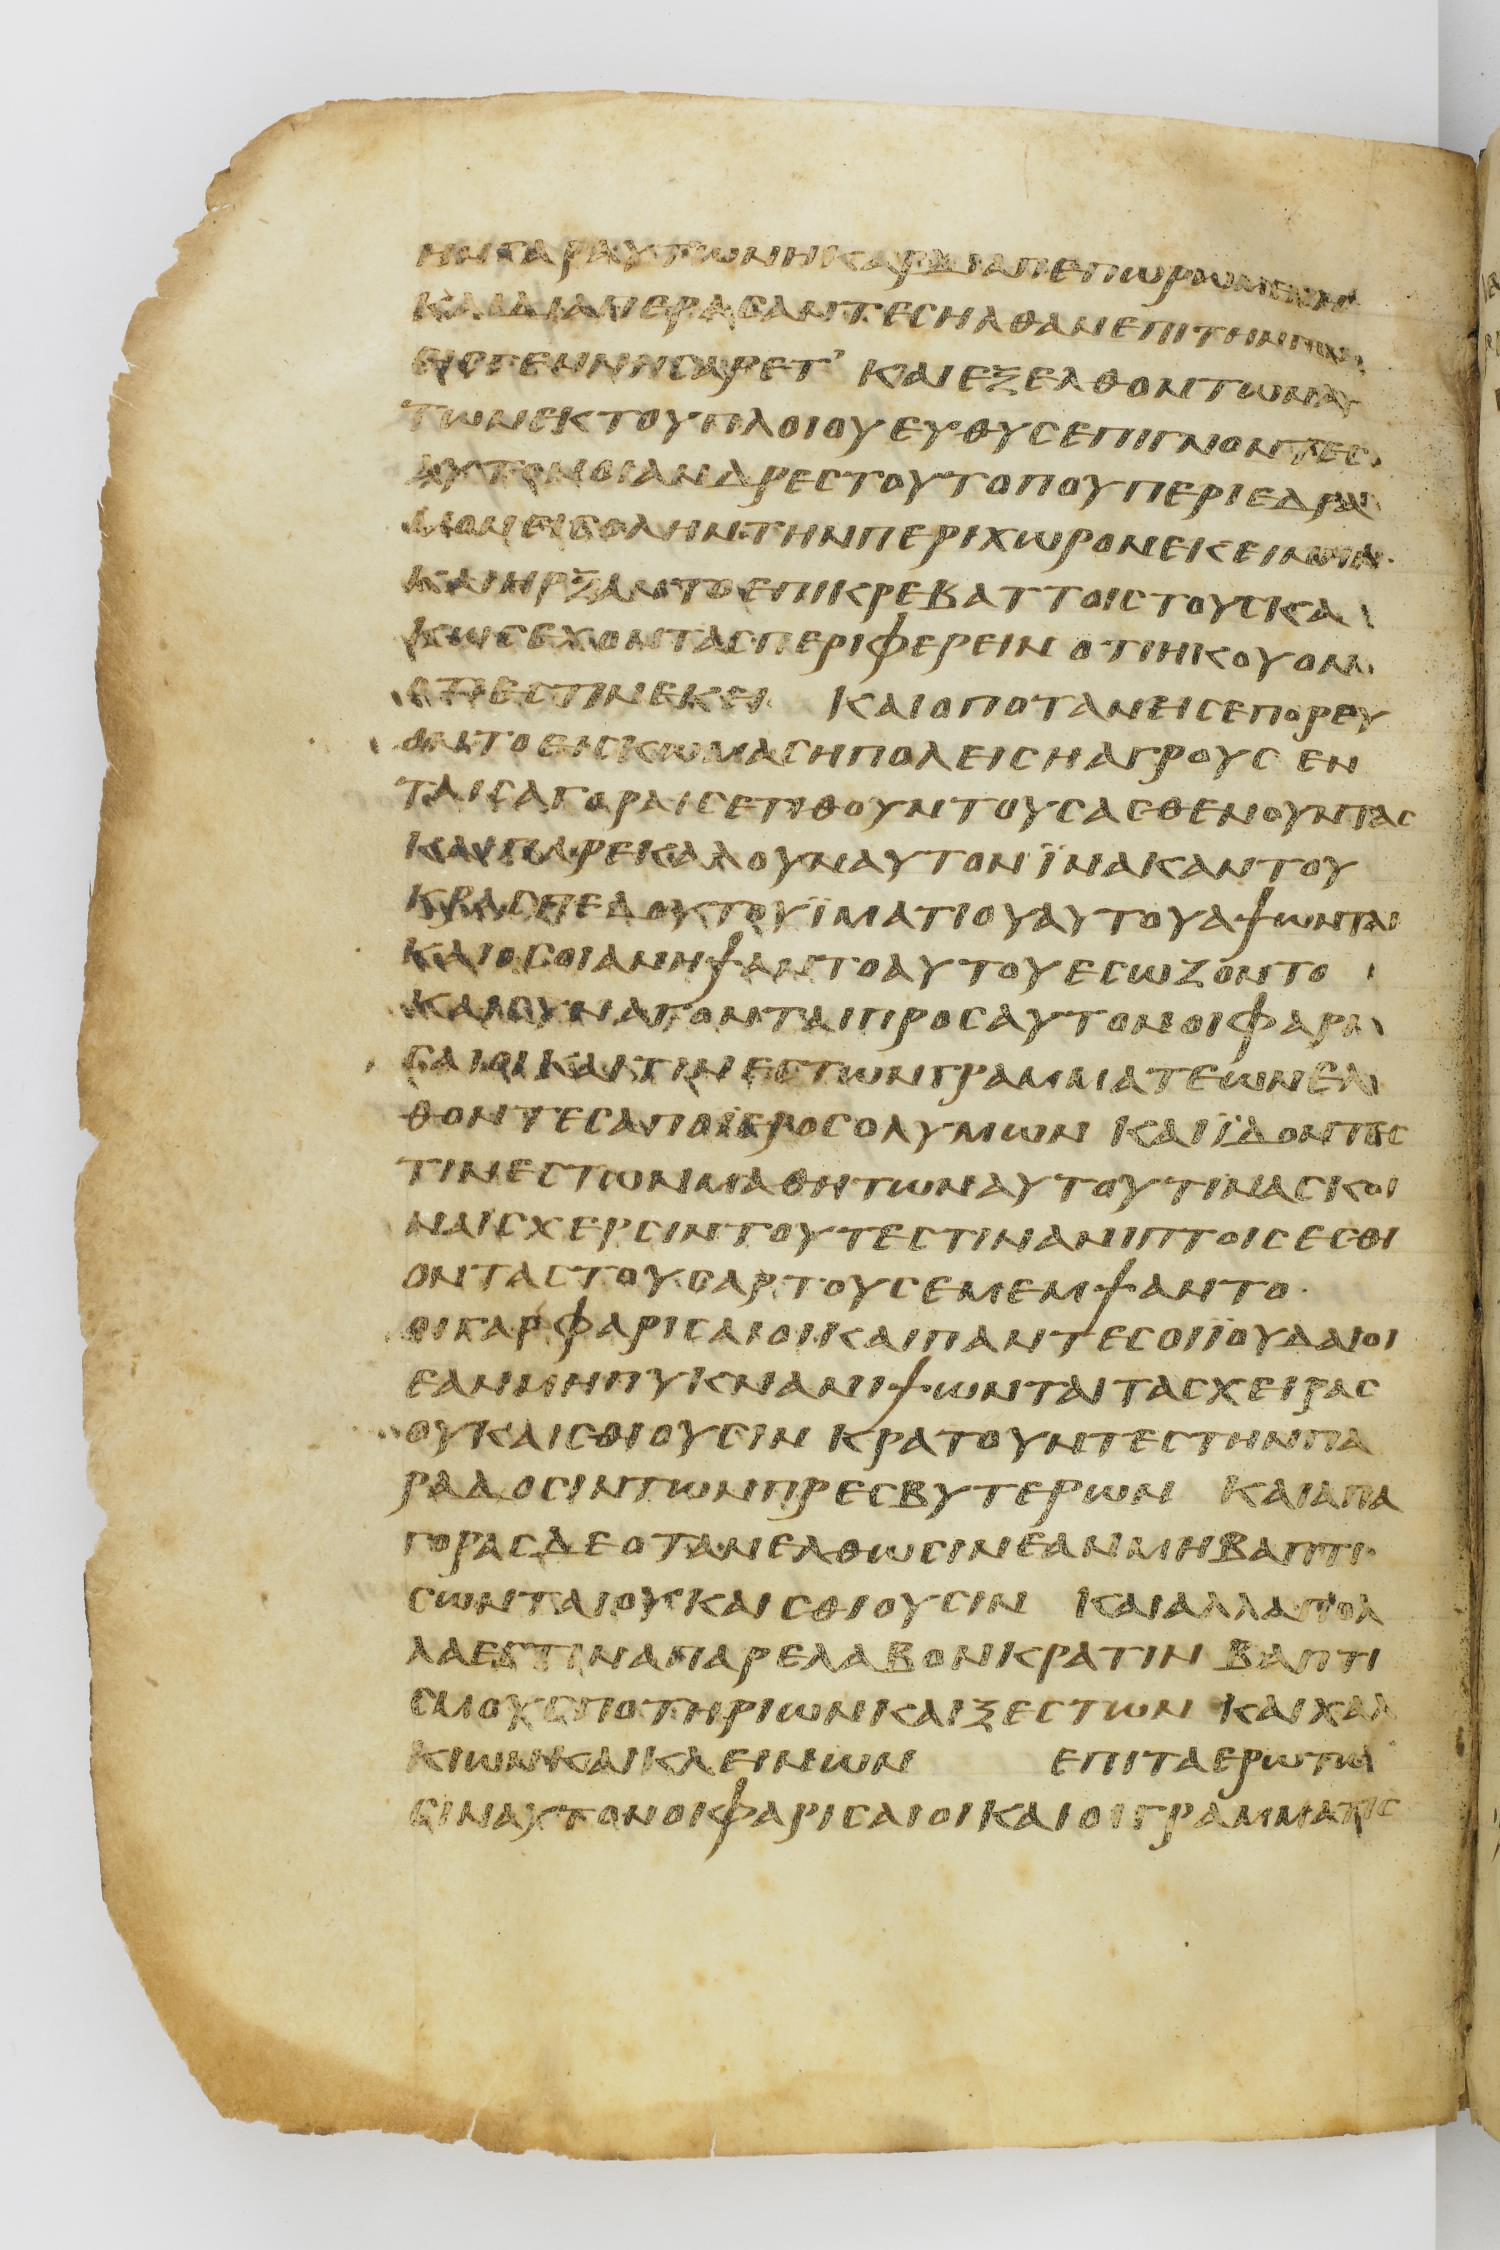 ΗΝΓΑΡΑΥΤΩΝΗΚΑΡΔΙΑΠΕΠΩΡΩΜΕΝΗ
ΚΑΙΔΙΑΠΕΡΑΣΑΝΤΕΣΗΛΘΑΝΕΠΙΤΗΝΓΗΝ
ΕΙΣΓΕΝΝΗΣΑΡΕΤ’ ΚΑΙΕΞΕΛΘΟΝΤΩΝΑΥ
ΤΩΝΕΚΤΟΥΠΛΟΙΟΥΕΥΘΥΣΕΠΙΓΝΟΝΤΕΣ
ΑΥΤΟΝΟΙΑΝΔΡΕΣΤΟΥΤΟΠΟΥΠΕΡΙΕΔΡΑ
ΜΟΝΕΙΣΟΛΗΝΤΗΝΠΕΡΙΧΩΡΟΝΕΚΕΙΝΗΝ
ΚΑΙΗΡΞΑΝΤΟΕΠΙΚΡΕΒΑΤΤΟΙΣΤΟΥΣΚΑ
ΚΩΣΕΧΟΝΤΑΣΠΕΡΙΦΕΡΕΙΝΟΤΙΗΚΟΥΟΝ
ΟΤΙΕΣΤΙΝΕΚΕΙ ΚΑΙΟΠΟΤΑΝΕΙΣΕΠΟΡΕΥ
ΟΝΤΟΕΙΣΚΩΜΑΣΗΠΟΛΕΙΣΗΑΓΡΟΥΣΕΝ
ΤΑΙΣΑΓΟΡΑΙΣΕΤΙΘΟΥΝΤΟΥΣΑΣΘΕΝΟΥΝΤΑΣ
ΚΑΙΠΑΡΕΚΑΛΟΥΝΑΥΤΟΝΪΝΑΚΑΝΤΟΥ
ΚΡΑΣΠΕΔΟΥΤΟΥΪΜΑΤΙΟΥΑΥΤΟΥΑΨΩΝΤΑΙ
ΚΑΙΟΣΟΙΑΝΗΨΑΝΤΟΑΥΤΟΥΕΣΩΖΟΝΤΟ
ΚΑΙΣΥΝΑΓΟΝΤΑΙΠΡΟΣΑΥΤΟΝΟΙΦΑΡΙ
ΣΑΙΟΙΚΑΙΤΙΝΕΣΤΩΝΓΡΑΜΜΑΤΕΩΝΕΛ
ΘΟΝΤΕΣΑΠΟΪΕΡΟΣΟΛΥΜΩΝ ΚΑΙΪΔΟΝΤΕΣ
ΤΙΝΕΣΤΩΝΜΑΘΗΤΩΝΑΥΤΟΥΤΙΝΑΣΚΟΙ
ΝΑΙΣΧΕΡΣΙΝΤΟΥΤΕΣΤΙΝΑΝΙΠΤΟΙΣΕΣΘΙ
ΟΝΤΑΣΤΟΥΣΑΡΤΟΥΣΕΜΕΜΨΑΝΤΟ
ΟΙΓΑΡΦΑΡΙΣΑΙΟΙΚΑΙΠΑΝΤΕΣΟΙΪΟΥΔΑΙΟΙ
ΕΑΝΜΗΠΥΚΝΑΝΙΨΩΝΤΑΙΤΑΣΧΕΙΡΑΣ
ΟΥΚΑΙΣΘΙΟΥΣΙΝ ΚΡΑΤΟΥΝΤΕΣΤΗΝΠΑ
ΡΑΔΟΣΙΝΤΩΝΠΡΕΣΒΥΤΕΡΩΝ ΚΑΙΑΠΑ
ΓΟΡΑΣΔΕΟΤΑΝΕΛΘΩΣΙΝΕΑΝΜΗΒΑΠΤΙ
ΣΩΝΤΑΙΟΥΚΑΙΣΘΙΟΥΣΙΝ ΚΑΙΑΛΛΑΠΟΛ
ΛΑΕΣΤΙΝΑΠΑΡΕΛΑΒΟΝΚΡΑΤΙΝΒΑΠΤΙ
ΣΜΟΥΣΠΟΤΗΡΙΩΝΚΑΙΞΕΣΤΩΝ ΚΑΙΧΑΛ
ΚΙΩΝΚΑΙΚΛΕΙΝΩΝ ΕΠΙΤΑΕΡΩΤΩ
ΣΙΝΑΥΤΟΝΟΙΦΑΡΙΣΑΙΟΙΚΑΙΟΙΓΡΑΜΜΑΤΙΣ